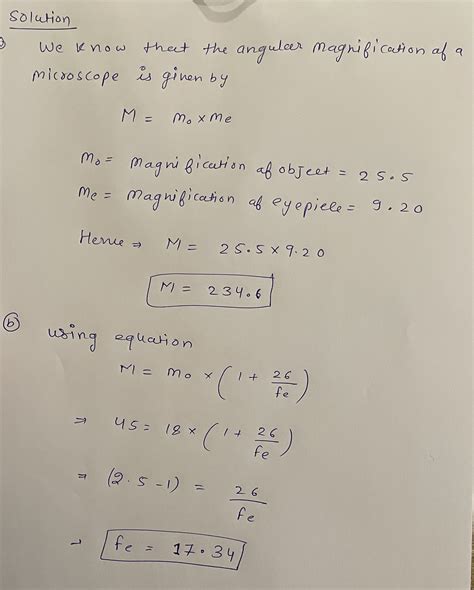 Solution
We know that the angular magnification of a
microscope is given by
M = mo × me
mo = magnification of object = 25.5
me = magnification of eyepiece = 9.20
Hence ⇒ M = 25.5 × 9.20
M = 234.6
(b) using equation
M = mo × (1 + 26/fe)
⇒ 45 = 18 × (1 + 26/fe)
= (2.5 - 1) = 26/fe
→ fe = 17.34